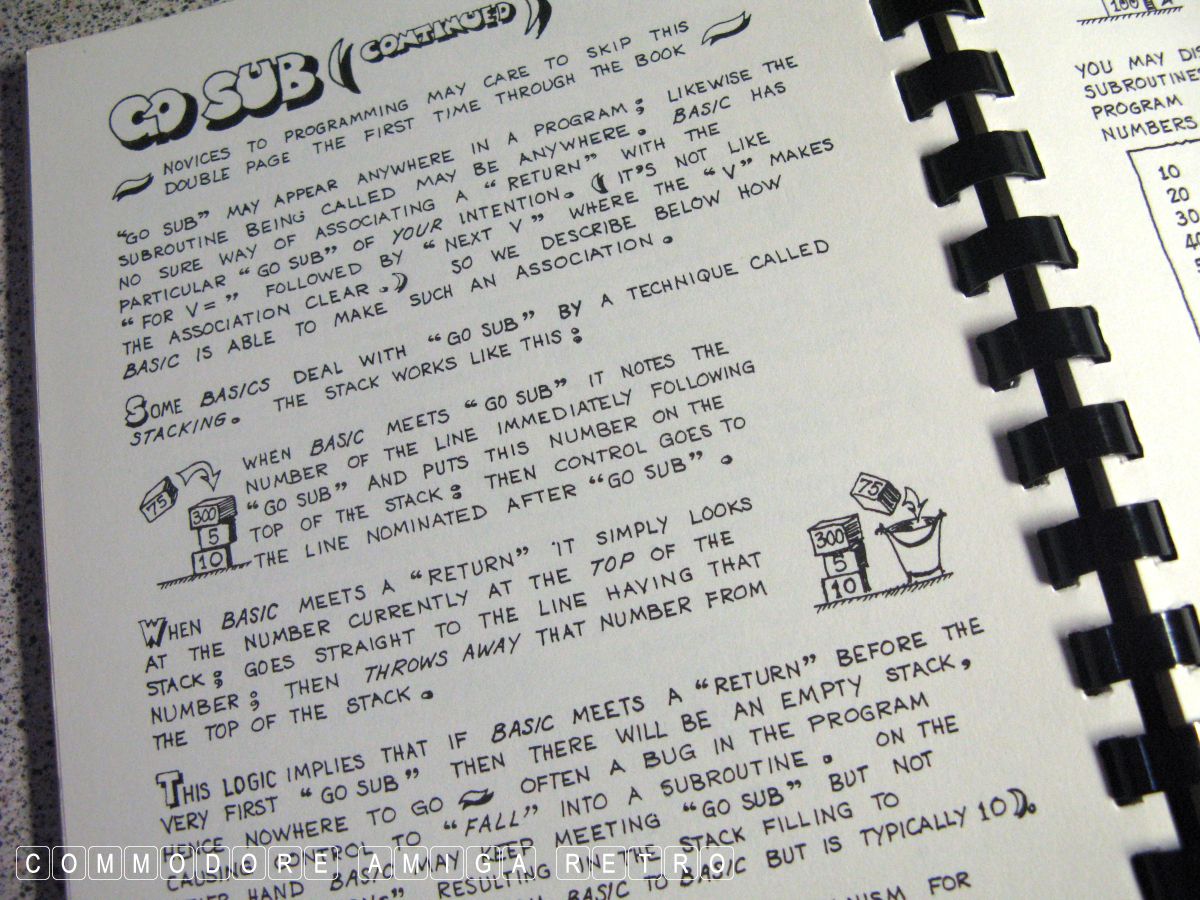 GO SUB (CONTINUED)
NOVICES TO PROGRAMMING MAY CARE TO SKIP THIS
DOUBLE PAGE THE FIRST TIME THROUGH THE BOOK
"GO SUB" MAY APPEAR ANYWHERE IN A PROGRAM; LIKEWISE THE
SUBROUTINE BEING CALLED MAY BE ANYWHERE. BASIC HAS
NO SURE WAY OF ASSOCIATING A "RETURN" WITH THE
PARTICULAR "GO SUB" OF YOUR INTENTION. (IT'S NOT LIKE
"FOR V=" FOLLOWED BY "NEXT V" WHERE THE "V" MAKES
THE ASSOCIATION CLEAR.) SO WE DESCRIBE BELOW HOW
BASIC IS ABLE TO MAKE SUCH AN ASSOCIATION.
SOME BASICS DEAL WITH "GO SUB" BY A TECHNIQUE CALLED
STACKING. THE STACK WORKS LIKE THIS:
WHEN BASIC MEETS "GO SUB" IT NOTES THE
NUMBER OF THE LINE IMMEDIATELY FOLLOWING
"GO SUB" AND PUTS THIS NUMBER ON THE
TOP OF THE STACK: THEN CONTROL GOES TO
THE LINE NOMINATED AFTER "GO SUB".
75
300
5
10
WHEN BASIC MEETS A "RETURN" IT SIMPLY LOOKS
AT THE NUMBER CURRENTLY AT THE TOP OF THE
STACK; GOES STRAIGHT TO THE LINE HAVING THAT
NUMBER; THEN THROWS AWAY THAT NUMBER FROM
THE TOP OF THE STACK.
75
300
5
10
THIS LOGIC IMPLIES THAT IF BASIC MEETS A "RETURN" BEFORE THE
VERY FIRST "GO SUB" THEN THERE WILL BE AN EMPTY STACK,
HENCE NOWHERE TO GO OFTEN A BUG IN THE PROGRAM
CAUSING CONTROL TO "FALL" INTO A SUBROUTINE. ON THE
HAND BASIC MAY KEEP MEETING "GO SUB" BUT NOT
RESULTING IN THE STACK FILLING TO
BASIC TO BASIC BUT IS TYPICALLY 10).
FOR
100
YOU MAY
SUBROUTINE
PROGRAM
NUMBERS
10
20
30
COMMODORE AMIGA RETRO